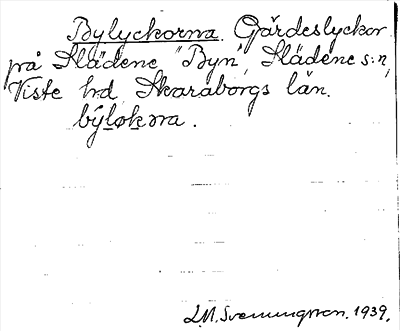 Bylyckorna. Gärdeslyckor
på Slädene "Byn", Slädene s:n,
Viste hd Skaraborgs län.
býløkɴa.
L.M. Svenungsson. 1939.